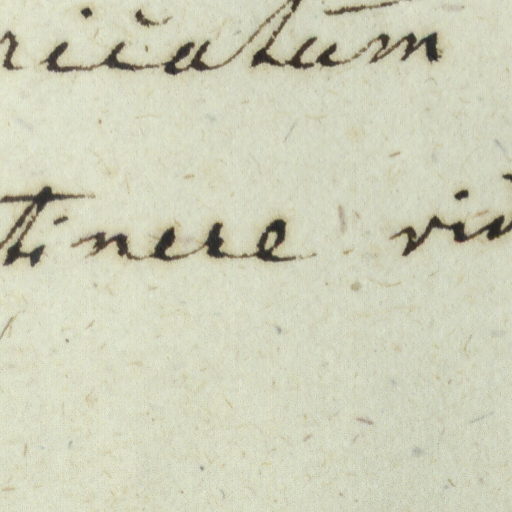 ricatum
tinere vid